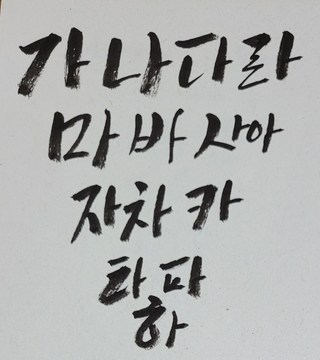 가 나 다 라
마 바 사 아
자 차 카
타 파
하